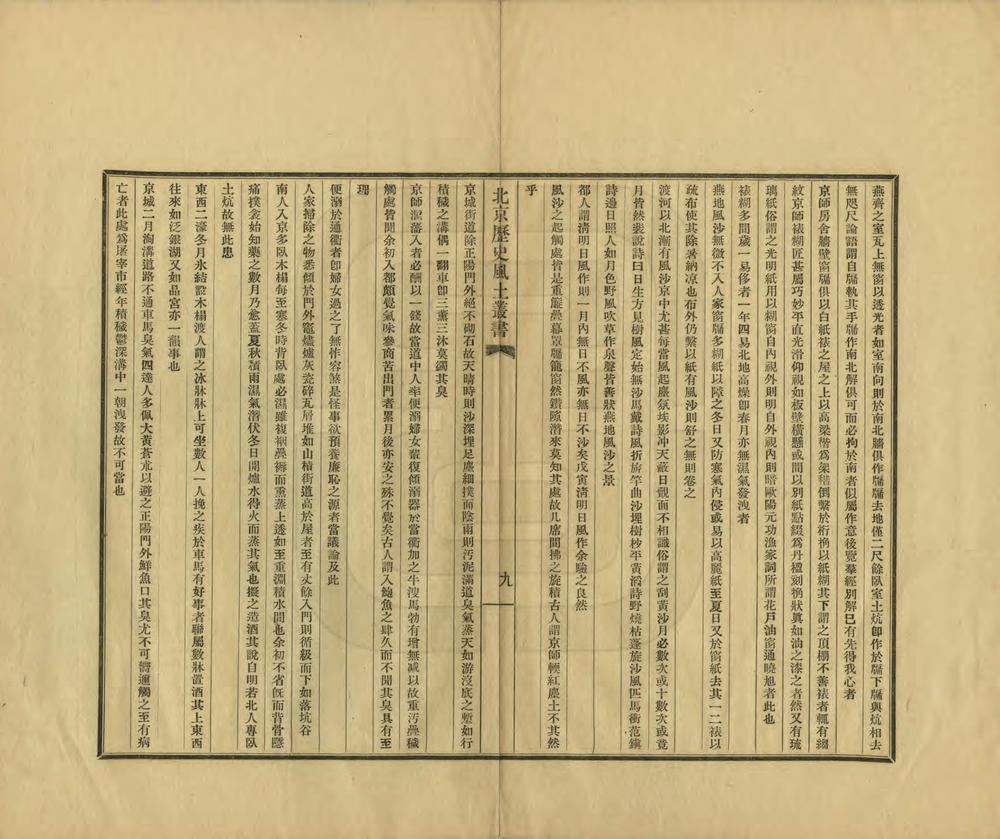 燕齊之室瓦上無窗以透光者如室南向則於南北牆俱作牖牖去地僅二尺餘臥室土炕卽作於牖下牖與炕相去
無咫尺論語謂自牖執其手牖作南北解俱可而必拘於南者似屬作意後覽羣經別解已有先得我心者
京師房舍牆壁窗牖俱以白紙裱之屋之上以高粱稭爲架稭倒繫於桁桷以紙糊其下謂之頂棚不善裱者輒有縐
紋京師裱糊匠甚屬巧妙平直光滑仰視如板壁橫懸或間以別紙點綴爲丹楹刻桷狀眞如油之漆之者然又有琉
璃紙俗謂之光明紙用以糊窗自內視外則明自外視內則暗歐陽元功漁家詞所謂花戶油窗通曉旭者此也
裱糊多間歲一易侈者一年四易北地高燥卽春月亦無濕氣發洩者
燕地風沙無微不入人家窗牖多糊紙以障之冬日又防塞氣內侵或易以高麗紙至夏日又於窗紙去其一二裱以
疏布使其除暑納凉也布外仍繫以紙有風沙則舒之無則卷之
渡河以北漸有風沙京中尤甚每當風起塵氛埃影冲天蔽日覿面不相識俗謂之刮黃沙月必數次或十數次或竟
月皆然裴說詩曰日生方見樹風定始無沙馬戴詩風折旂竿曲沙埋樹杪平黃滔詩野燒枯蓬旋沙風匹馬衝范鎭
詩邊日照人如月色野風吹草作泉聲皆善狀燕地風沙之景
都人謂淸明日風作則一月內無日不風亦無日不沙矣戊寅淸明日風作余驗之良然
風沙之起觸處皆是重簾疊幕罩牖籠窗然鑽隙潛來莫知其處故几席間拂之旋積古人謂京師輭紅塵土不其然
乎
北京歷史風土叢書
九
京城街道除正陽門外絕不砌石故天晴時則沙深埋足塵細撲面陰雨則汚泥滿道臭氣蒸天如游沒底之塹如行
積穢之溝偶一翻車卽三薰三沐莫蠲其臭
京師溷藩入者必酬以一錢故當道中人率便溺婦女輩復傾溺器於當衢加之牛溲馬勃有增無减以故重汚疊穢
觸處皆聞余初入都頗覺氣味參商苦出門者累月後亦安之殊不覺矣古人謂入鮑魚之肆久而不聞其臭具有至
理
便溺於通衢者卽婦女過之了無怍容煞是怪事欲預養廉恥之源者當議論及此
人家掃除之物悉傾於門外竈燼爐灰瓷碎瓦屑堆如山積街道高於屋者至有丈餘入門則循級而下如落坑谷
南人入京多臥木榻每至塞冬時背臥處必濕雖複裀疊褥而重蒸上透如至重淵積水間也余初不省旣而背骨隱
痛撲衾始知藥之數月乃愈蓋夏秋積雨濕氣潛伏冬日開爐水得火而蒸其氣也擬之造酒其說自明若北人專臥
土炕故無此患
東西二濠冬月氷結設木榻渡人謂之冰牀牀上可坐數人一人挽之疾於車馬有好事者聯屬數牀置酒其上東西
往來如泛銀湖又如晶宮亦一韻事也
京城二月淘溝道路不通車馬臭氣四達人多佩大黃蒼朮以避之正陽門外鮮魚口其臭尤不可嚮邇觸之至有病
亡者此處爲屠宰市經年積穢鬱深溝中一朝洩發故不可當也